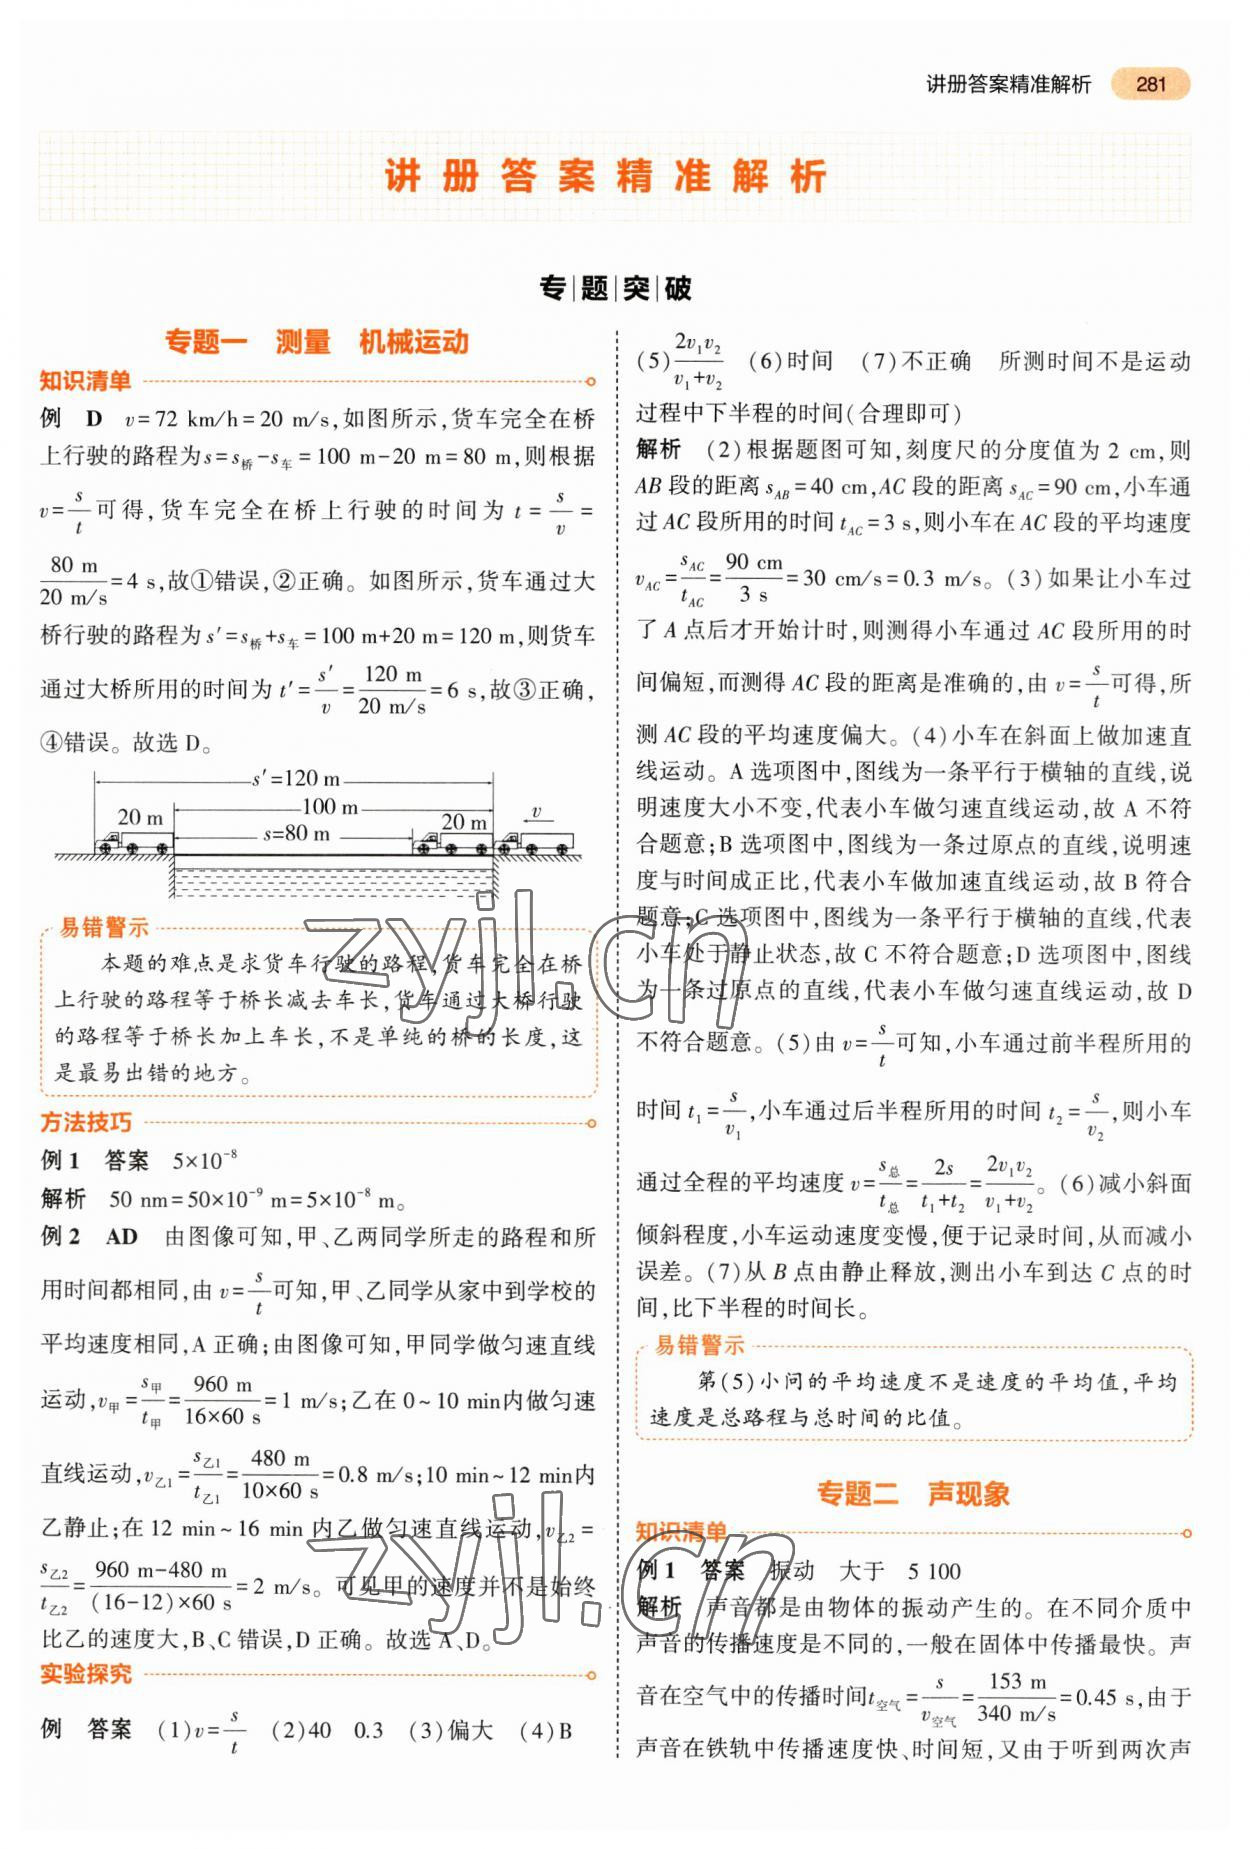 讲册答案精准解析 281
讲册答案精准解析
专题突破
专题一 测量 机械运动
知识清单
例 D v=72 km/h=20 m/s,如图所示,货车完全在桥
上行驶的路程为s=s桥-s车=100 m-20 m=80 m,则根据
v=s/t可得,货车完全在桥上行驶的时间为 t=s/v=
80 m/20 m/s=4 s,故①错误,②正确。如图所示,货车通过大
桥行驶的路程为 s′=s桥+s车=100 m+20 m=120 m,则货车
通过大桥所用的时间为 t′=s′/v=120 m/20 m/s=6 s,故③正确,
④错误。故选 D。
s′=120 m
100 m
20 m s=80 m 20 m v
易错警示
本题的难点是求货车行驶的路程,货车完全在桥
上行驶的路程等于桥长减去车长,货车通过大桥行驶
的路程等于桥长加上车长,不是单纯的桥的长度,这
是最易出错的地方。
方法技巧
例1 答案 5×10⁻⁸
解析 50 nm=50×10⁻⁹ m=5×10⁻⁸ m。
例2 AD 由图像可知,甲、乙两同学所走的路程和所
用时间都相同,由 v=s/t可知,甲、乙同学从家中到学校的
平均速度相同,A 正确;由图像可知,甲同学做匀速直线
运动,v甲=s甲/t甲=960 m/16×60 s=1 m/s;乙在 0~10 min内做匀速
直线运动,v乙1=s乙1/t乙1=480 m/10×60 s=0.8 m/s;10 min~12 min内
乙静止;在 12 min~16 min 内乙做匀速直线运动,v乙2=
s乙2/t乙2=960 m-480 m/(16-12)×60 s=2 m/s。可见甲的速度并不是始终
比乙的速度大,B、C 错误,D 正确。故选 A、D。
实验探究
例 答案 (1)v=s/t (2)40 0.3 (3)偏大 (4)B
(5)2v₁v₂/v₁+v₂ (6)时间 (7)不正确 所测时间不是运动
过程中下半程的时间(合理即可)
解析 (2)根据题图可知,刻度尺的分度值为 2 cm,则
AB 段的距离 s_AB=40 cm,AC 段的距离 s_AC=90 cm,小车通
过 AC 段所用的时间 t_AC=3 s,则小车在 AC 段的平均速度
v_AC=s_AC/t_AC=90 cm/3 s=30 cm/s=0.3 m/s。(3)如果让小车过
了 A 点后才开始计时,则测得小车通过 AC 段所用的时
间偏短,而测得 AC 段的距离是准确的,由 v=s/t可得,所
测 AC 段的平均速度偏大。(4)小车在斜面上做加速直
线运动。A 选项图中,图线为一条平行于横轴的直线,说
明速度大小不变,代表小车做匀速直线运动,故 A 不符
合题意;B 选项图中,图线为一条过原点的直线,说明速
度与时间成正比,代表小车做加速直线运动,故 B 符合
题意;C 选项图中,图线为一条平行于横轴的直线,代表
小车处于静止状态,故 C 不符合题意;D 选项图中,图线
为一条过原点的直线,代表小车做匀速直线运动,故 D
不符合题意。(5)由 v=s/t可知,小车通过前半程所用的
时间 t₁=s/v₁,小车通过后半程所用的时间 t₂=s/v₂,则小车
通过全程的平均速度 v=s总/t总=2s/t₁+t₂=2v₁v₂/v₁+v₂。(6)减小斜面
倾斜程度,小车运动速度变慢,便于记录时间,从而减小
误差。(7)从 B 点由静止释放,测出小车到达 C 点的时
间,比下半程的时间长。
易错警示
第(5)小问的平均速度不是速度的平均值,平均
速度是总路程与总时间的比值。
专题二 声现象
知识清单
例1 答案 振动 大于 5 100
解析 声音都是由物体的振动产生的。在不同介质中
声音的传播速度是不同的,一般在固体中传播最快。声
音在空气中的传播时间t空气=s/v空气=153 m/340 m/s=0.45 s,由于
声音在铁轨中传播速度快、时间短,又由于听到两次声
zyjl.cn
zyjl.cn